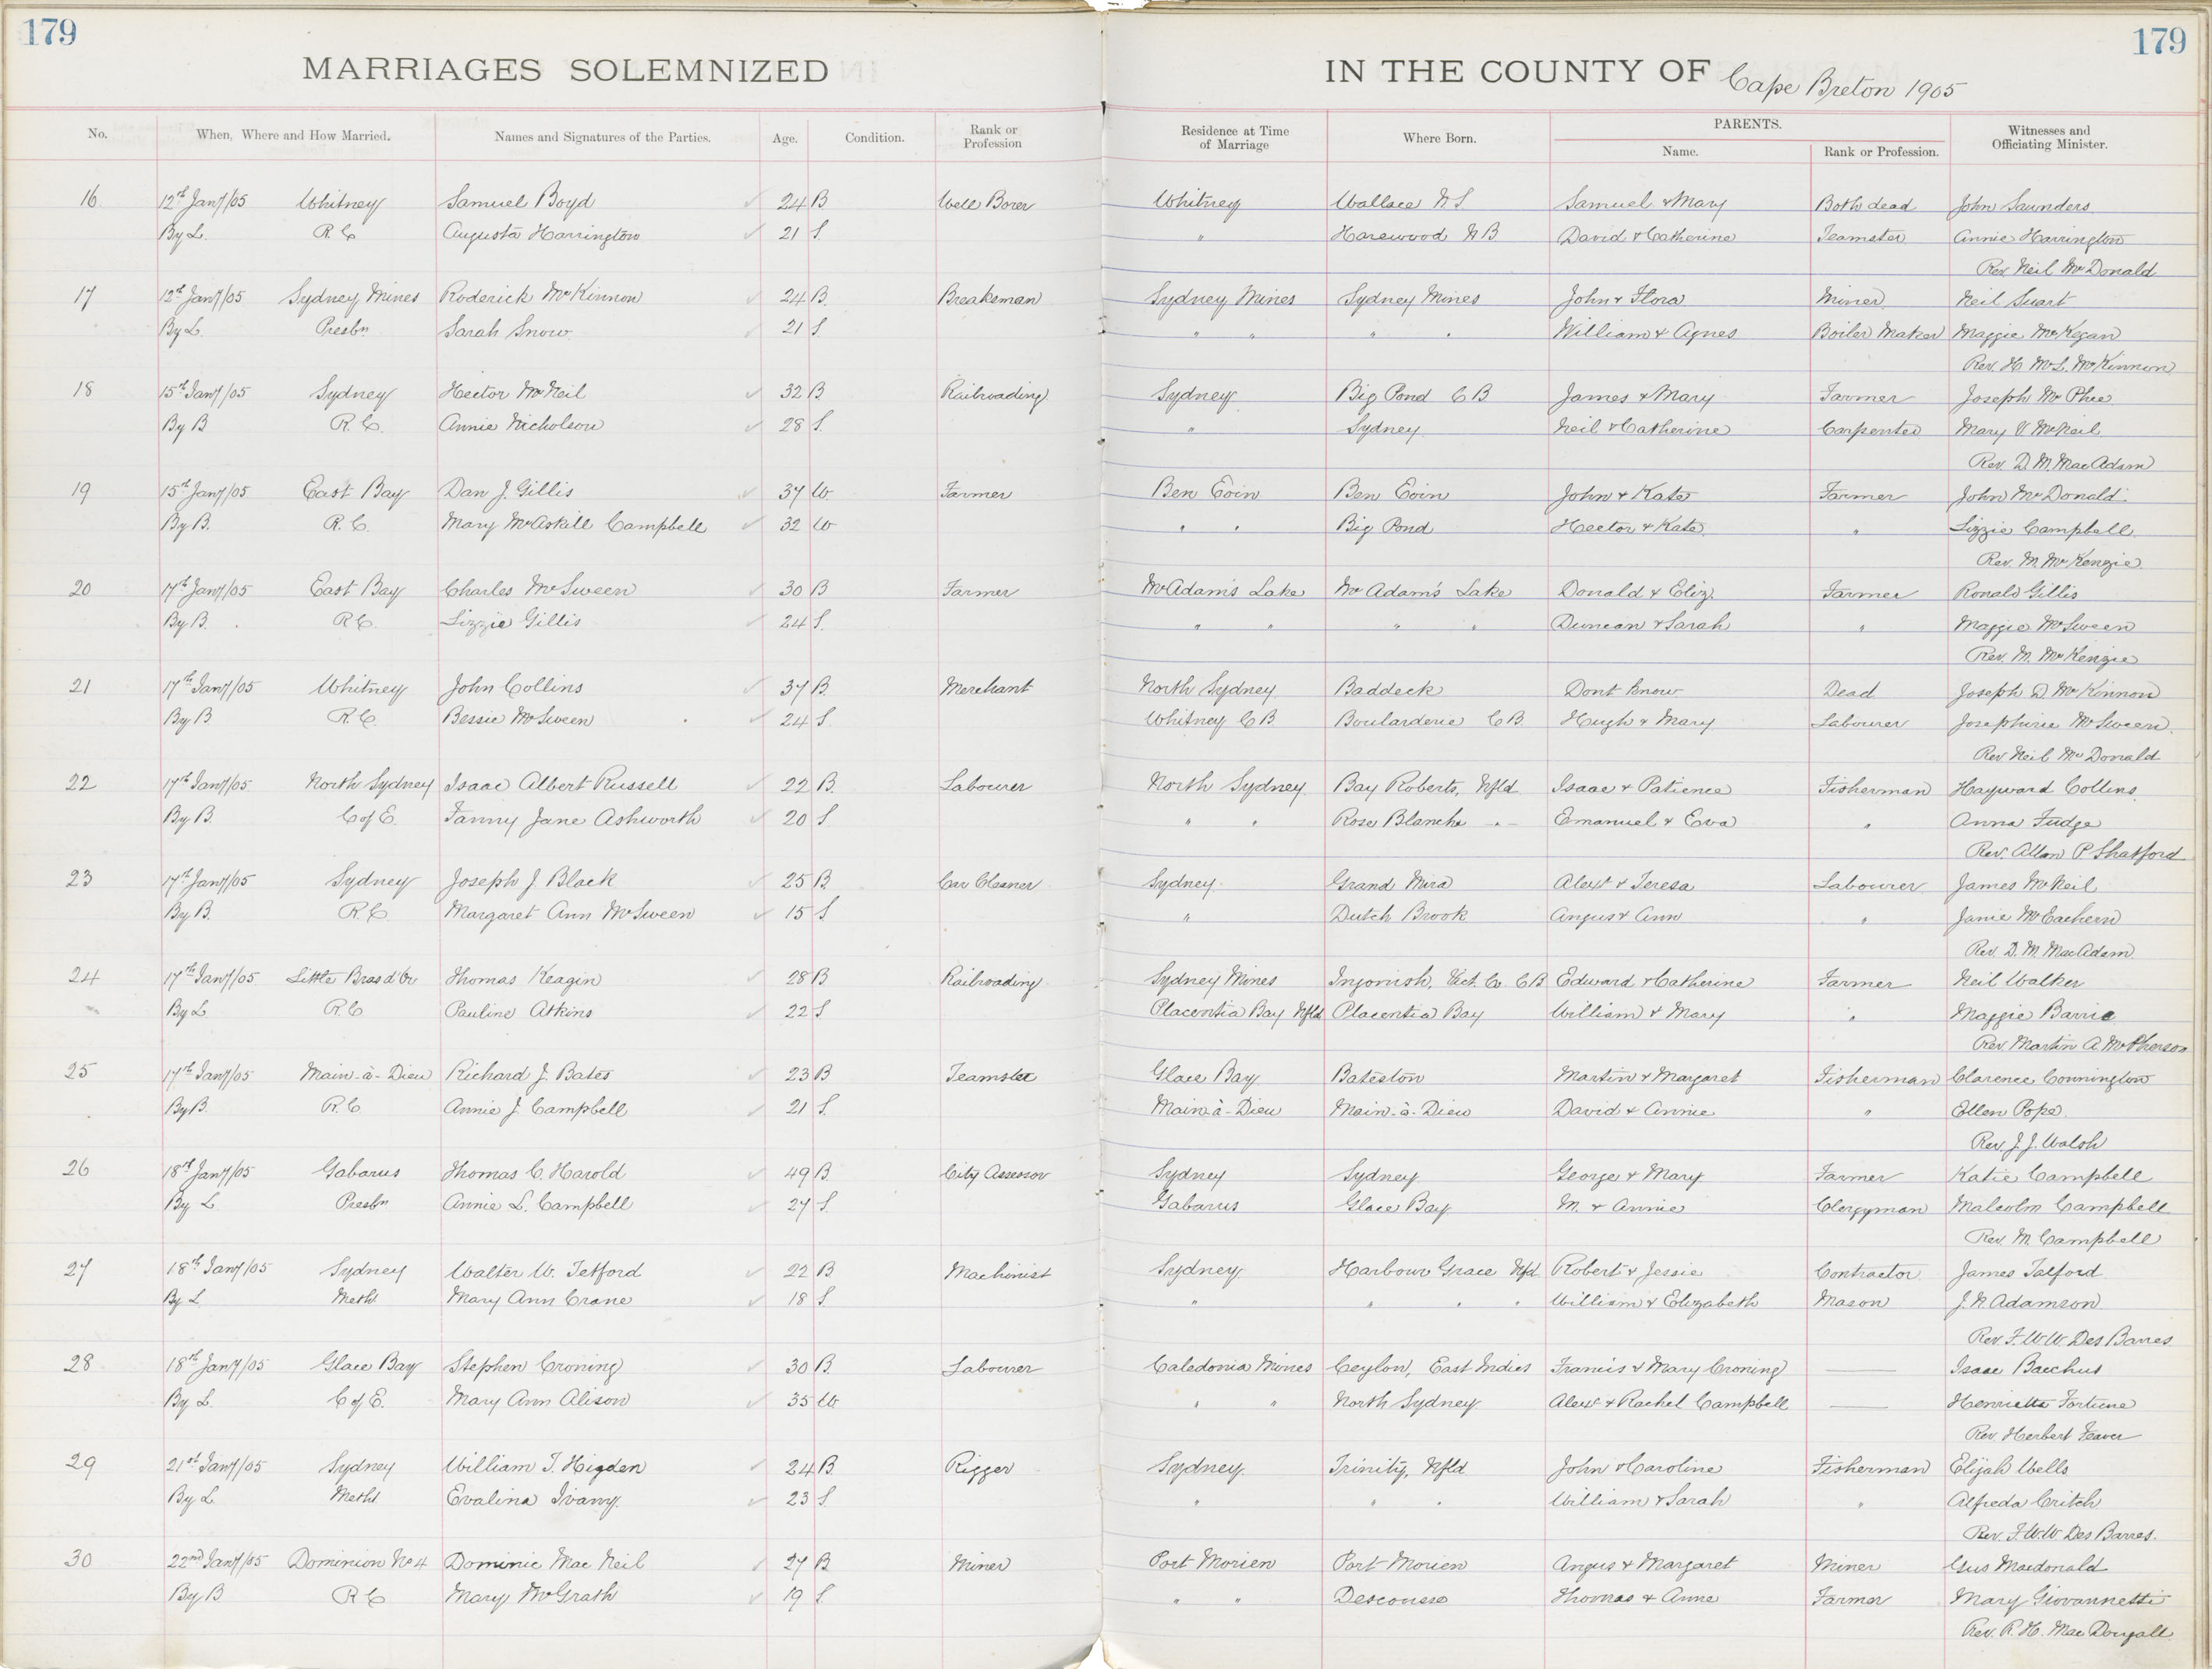 179
179
MARRIAGES SOLEMNIZED IN THE COUNTY OF Cape Breton 1905
No. When, Where and How Married. Names and Signatures of the Parties. Age. Condition. Rank or Profession Residence at Time of Marriage Where Born. PARENTS. Name. Rank or Profession. Witnesses and Officiating Minister.
16 12th Jany/05 Whitney Samuel Boyd 24 B Well Borer Whitney Wallace N.S. Samuel & Mary Both dead John Saunders
By L. R.C. Augusta Harrington 21 S. " Harewood N B David & Catherine Teamster Annie Harrington
Rev. Neil McDonald
17 12th Jany/05 Sydney Mines Roderick McKinnon 24 B. Breaksman Sydney Mines Sydney Mines John & Flora Miner Neil Suart
By L. Presbn Sarah Snow 21 S. " " " " William & Agnes Boiler Maker Maggie McKegan
Rev. H. McL. McKinnon
18 15th Jany/05 Sydney Hector McNeil 32 B Railroading Sydney Big Pond C B James & Mary Farmer Joseph McPhee
By B R.C. Annie Nicholson 28 S. " Sydney Neil & Catherine Carpenter Mary V McNeil
Rev. D. M. MacAdam
19 15th Jany/05 East Bay Dan J. Gillis 37 W Farmer Ben Eoin Ben Eoin John & Kate Farmer John McDonald
By B. R.C. Mary McAskill Campbell 32 W " " Big Pond Hector & Kate " Lizzie Campbell
Rev. M. McKenzie
20 17th Jany/05 East Bay Charles McSween 30 B Farmer McAdam's Lake McAdam's Lake Donald & Eliz. Farmer Ronald Gillis
By B. R.C. Lizzie Gillis 24 S. " " " " Duncan & Sarah " Maggie McSween
Rev. M. McKenzie
21 17th Jany/05 Whitney John Collins 37 B. Merchant North Sydney Baddeck Dont know Dead Joseph D. McKinnon
By B R.C. Bessie McSween 24 S. Whitney C B Boularderie C B Hugh & Mary Labourer Josephine McSween
Rev Neil McDonald
22 17th Jany/05 North Sydney Isaac Albert Russell 22 B. Labourer North Sydney Bay Roberts, Nfld Isaac & Patience Fisherman Hayward Collins
By B. C of E. Fanny Jane Ashworth 20 S. " " Rose Blanche " Emanuel & Eva " Anna Fudge
Rev. Allan P Shatford
23 17th Jany/05 Sydney Joseph J. Black 25 B. Car Cleaner Sydney Grand Mira Alexr & Teresa Labourer James McNeil
By B. R.C. Margaret Ann McSween 15 S " Dutch Brook Angus & Ann " Janie McEachern
Rev. D. M. MacAdam
24 17th Jany/05 Little Bras d'Or Thomas Keagin 28 B Railroading Sydney Mines Ingonish, Vict. Co C B Edward & Catherine Farmer Neil Walker
By L R.C. Pauline Atkins 22 S Placentia Bay Nfld Placentia Bay William & Mary " Maggie Barrie
Rev. Martin A. McPherson
25 17th Jany/05 Main-à-Dieu Richard J. Bates 23 B Teamster Glace Bay Bateston Martin & Margaret Fisherman Clarence Connington
By B. R.C. Annie J. Campbell 21 S. Main-à-Dieu Main-à-Dieu David & Annie " Ellen Pope
Rev J. J. Walsh
26 18th Jany/05 Gabarus Thomas C. Harold 49 B. City Assessor Sydney Sydney George & Mary Farmer Katie Campbell
By L Presbn Annie L. Campbell 27 S. Gabarus Glace Bay M. & Annie Clergyman Malcolm Campbell
Rev. M. Campbell
27 18th Jany/05 Sydney Walter W. Tetford 22 B. Machinist Sydney Harbour Grace Nfd Robert & Jessie Contractor James Talford
By L Meth Mary Ann Crane 18 S. " " " " William & Elizabeth Mason J. N. Adamson
Rev. F. W. W. Des Barres
28 18th Jany/05 Glace Bay Stephen Croning 30 B. Labourer Caledonia Mines Ceylon, East Indies Francis & Mary Croning —— Isaac Bacchus
By L. C of E. Mary Ann Alison 35 W " " North Sydney Alexr & Rachel Campbell —— Henrietta Fortune
Rev. Herbert Feaver
29 21st Jany/05 Sydney William T. Higden 24 B. Rigger Sydney Trinity, Nfld John & Caroline Fisherman Elijah Wells
By L Meth Evalina Ivany 23 S. " " " William & Sarah " Alfreda Critch
Rev. F. W. W Des Barres.
30 22nd Jany/05 Dominion No 4 Dominic Mac Neil 27 B Miner Port Morien Port Morien Angus & Margaret Miner Gus Macdonald
By B R C Mary McGrath 19 S. " " Descousse Thomas & Anne Farmer Mary Giovannetti
Rev. R. H. MacDougall